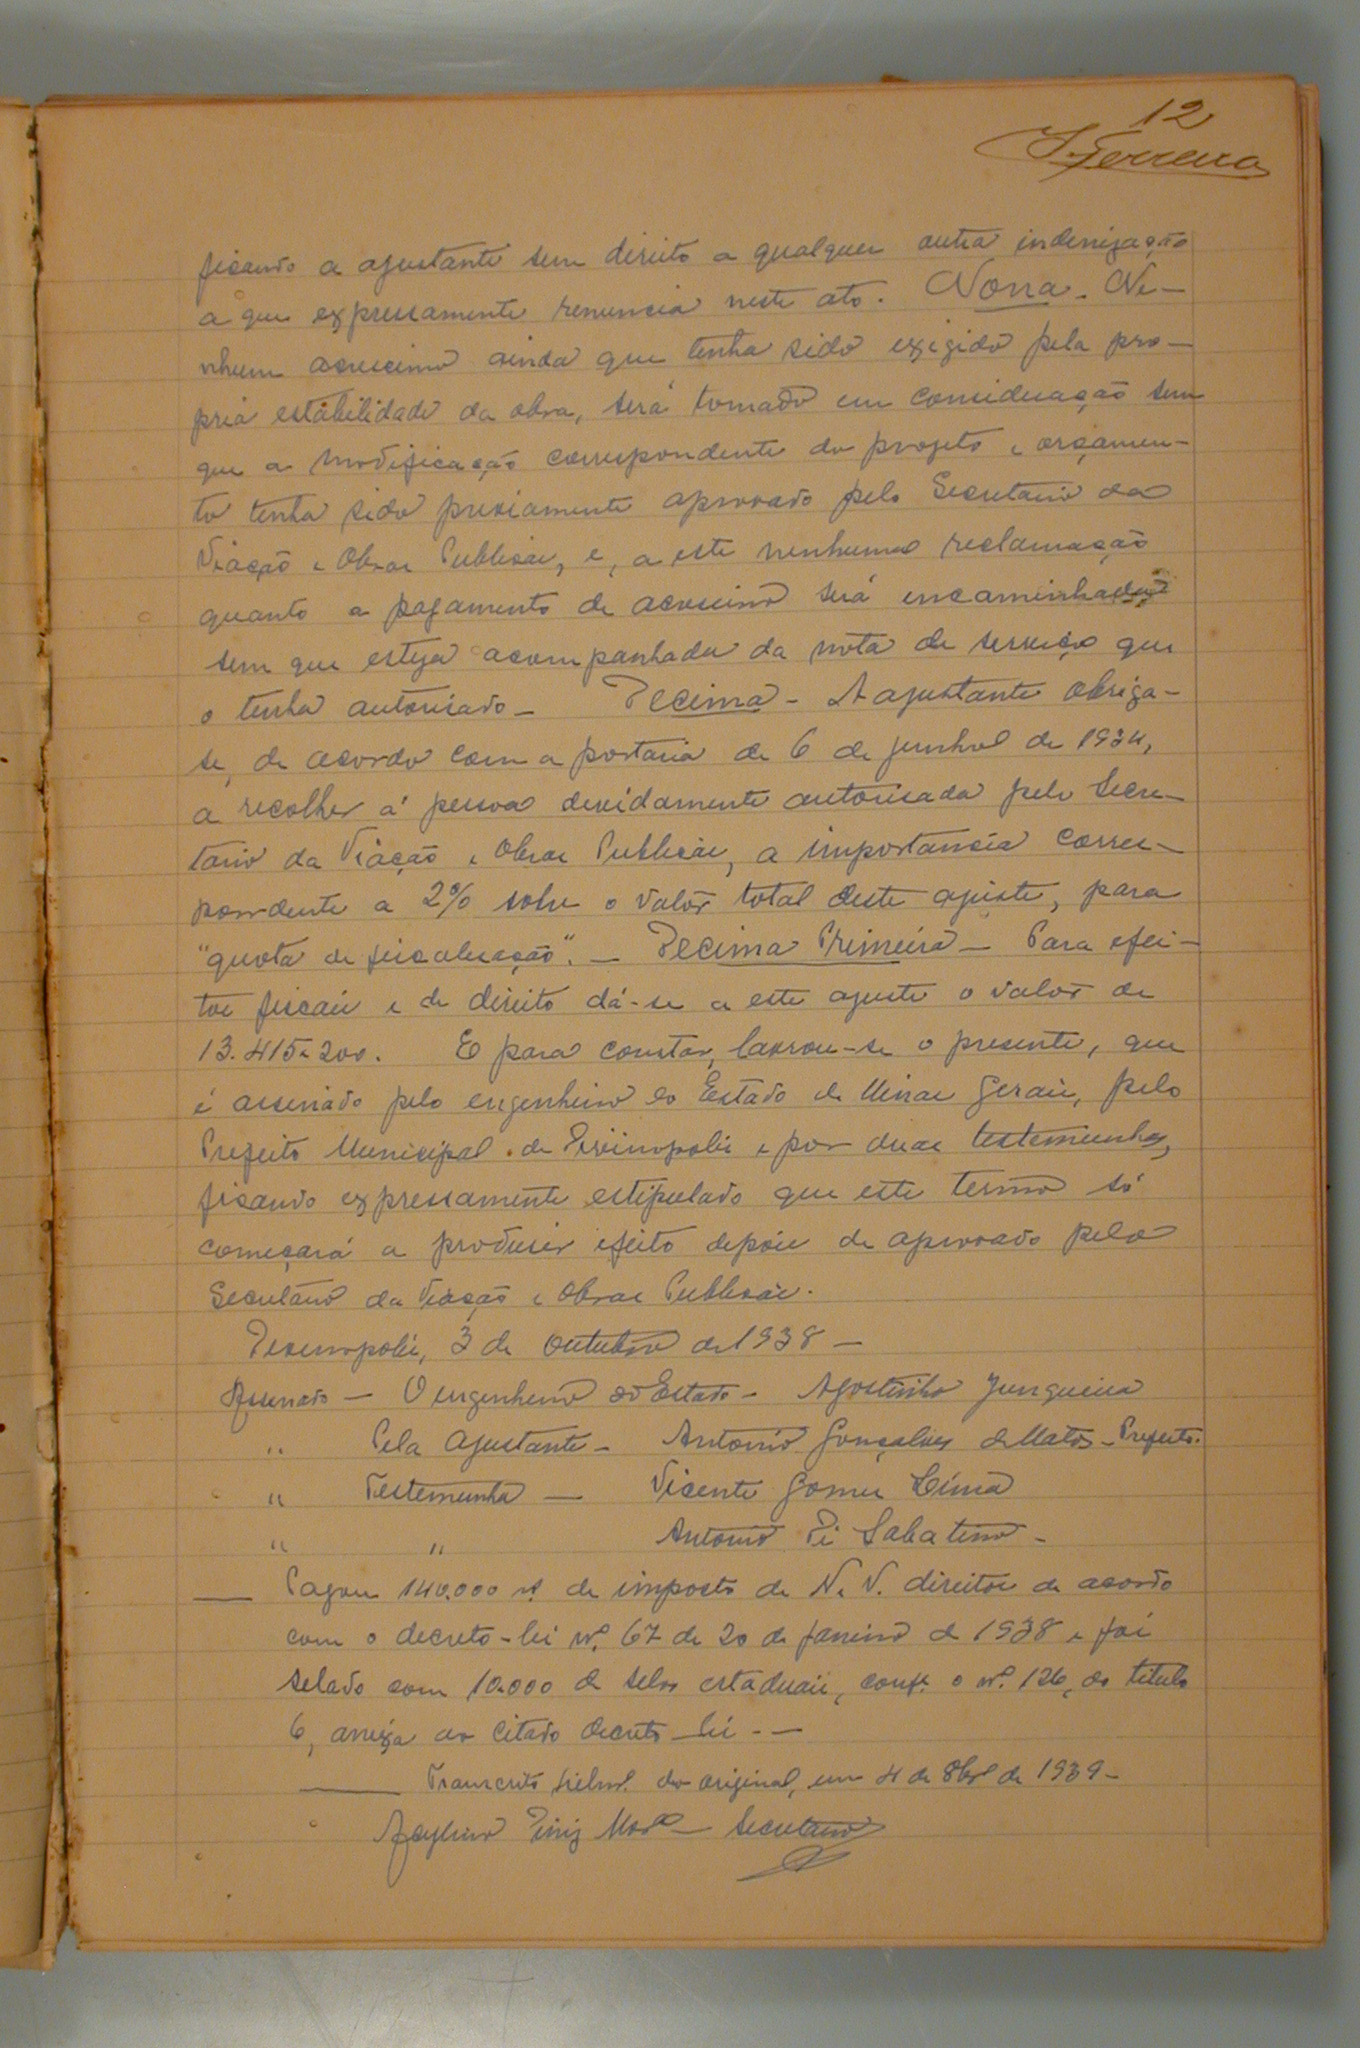 12
J. Ferreira
ficando a ajustante sem direito a qualquer outra indenização
a que expressamente renuncia neste ato. Nona - Ne-
nhum acrescimo ainda que tenha sido exigido pela pro-
pria estabilidade da obra, será tomado em consideração sem
que a modificação correspondente do projeto e orçamen-
to tenha sido previamente aprovado pelo Secretario da
Viação e Obras Publicas, e, a este nenhuma reclamação
quanto a pagamento de acrescimo será encaminhada
sem que esteja acompanhada da nota de serviço que
o tenha autorisado - Decima - A ajustante obriga-
se, de acordo com a portaria de 6 de junho de 1934,
a recolher á pessoa devidamente autorisada pelo Secre-
tario da Viação e Obras Publicas, a importancia corres-
pondente a 2% sobre o valor total deste ajuste, para
"quota de fiscalisação". - Decima Primeira - Para efei-
tos fiscais e de direito dá-se a este ajuste o valor de
13.415$200. E para constar, lavrou-se o presente, que
é assinado pelo engenheiro do Estado de Minas Gerais, pelo
Prefeito Municipal de Divinopolis e por duas testemunhas,
ficando expressamente estipulado que este termo só
começará a produzir efeito depois de aprovado pelo
Secretario da Viação e Obras Publicas.
Divinopolis, 3 de outubro de 1938 -
Assinado - O engenheiro do Estado - Agostinho Junqueira
" Pela Ajustante - Antonio Gonçalves de Matos - Prefeito.
" Testemunha - Vicente Gomes Lima
" " Antonio Di Sabatino -
Pagou 140.000 rs. de imposto de N. V. direitos de acordo
com o decreto-lei nº. 67 de 20 de janeiro de 1938 e foi
selado com 10.000 de selos estaduais, conf. o nº. 126, do titulo
6, anexa ao citado decreto-lei --
Transcrito do original, em 4 de 8bro de 1939 -
Diniz Secretario